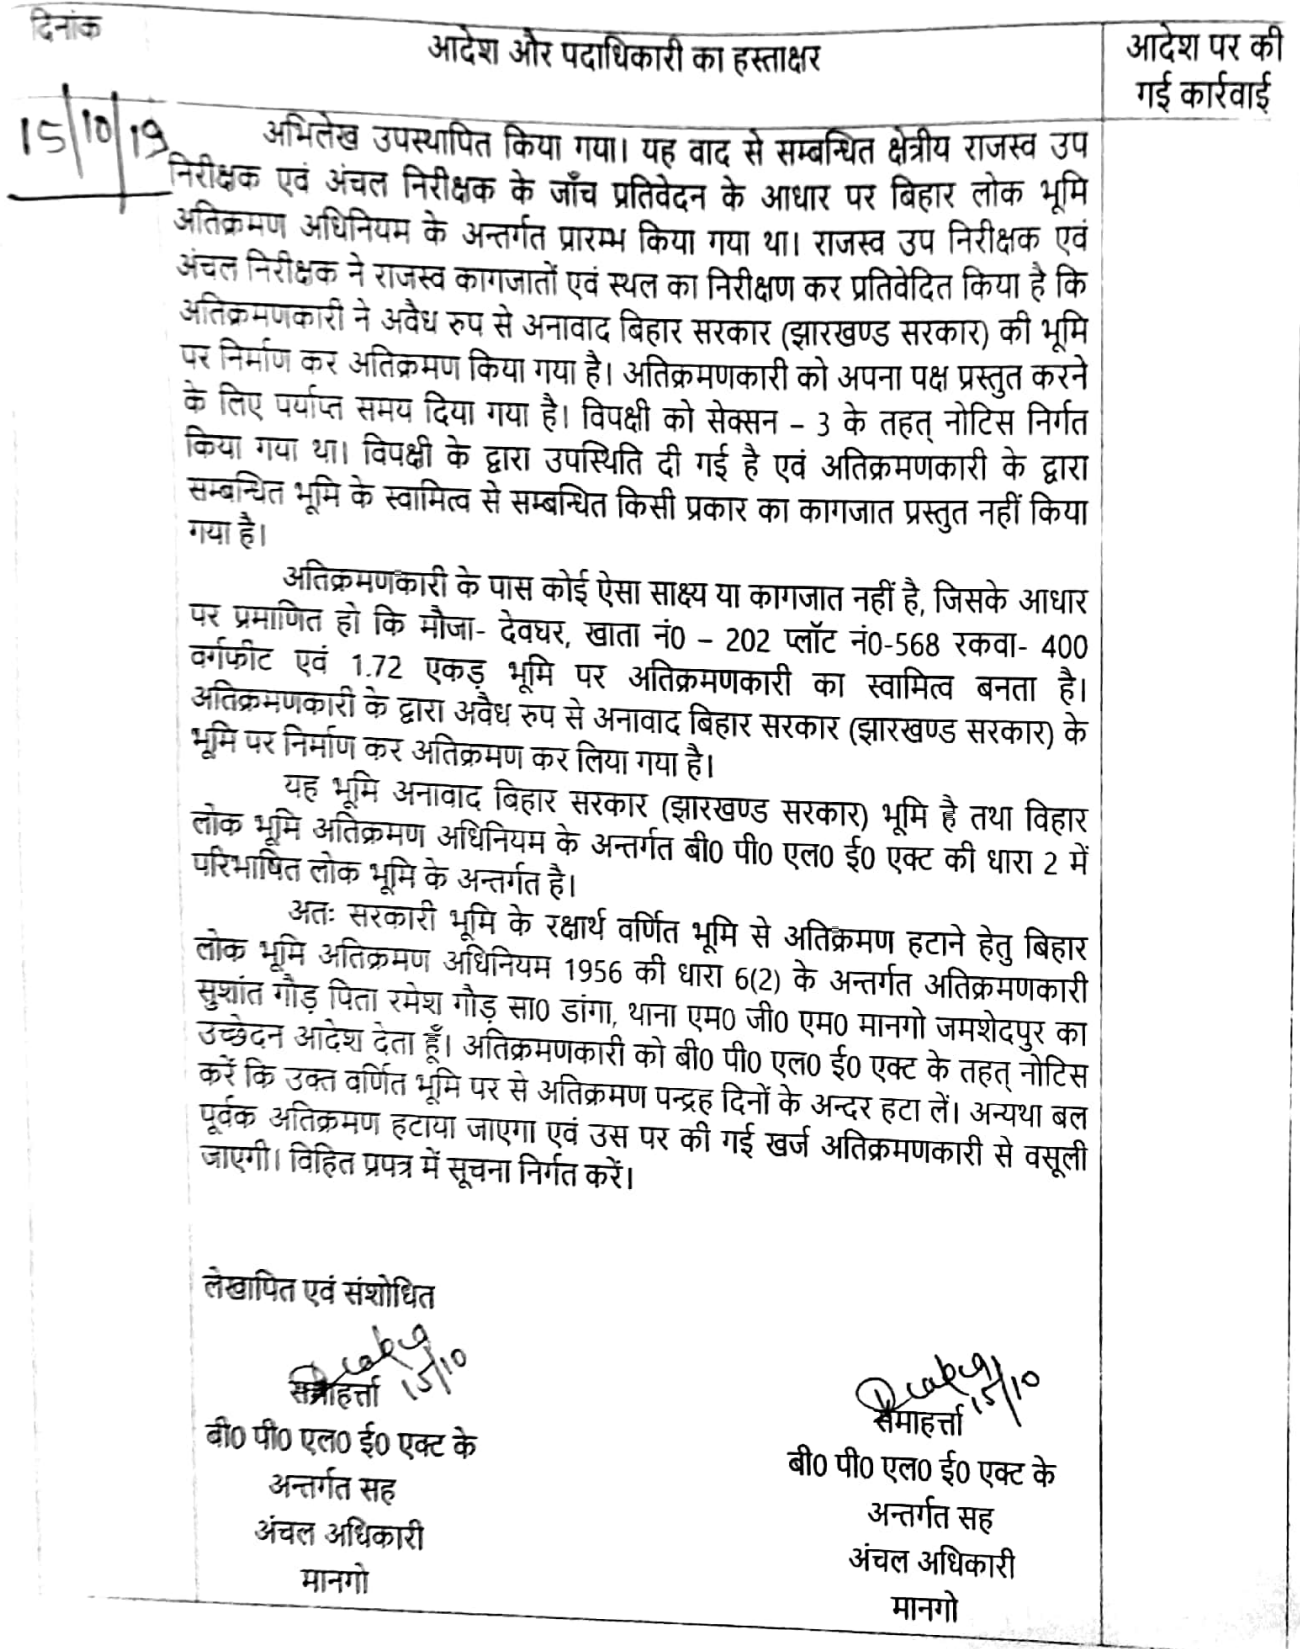 दिनांक
आदेश और पदाधिकारी का हस्ताक्षर
आदेश पर की
गई कार्रवाई
15/10/19
अभिलेख उपस्थापित किया गया। यह वाद से सम्बन्धित क्षेत्रीय राजस्व उप
निरीक्षक एवं अंचल निरीक्षक के जाँच प्रतिवेदन के आधार पर बिहार लोक भूमि
अतिक्रमण अधिनियम के अन्तर्गत प्रारम्भ किया गया था। राजस्व उप निरीक्षक एवं
अंचल निरीक्षक ने राजस्व कागजातों एवं स्थल का निरीक्षण कर प्रतिवेदित किया है कि
अतिक्रमणकारी ने अवैध रुप से अनावाद बिहार सरकार (झारखण्ड सरकार) की भूमि
पर निर्माण कर अतिक्रमण किया गया है। अतिक्रमणकारी को अपना पक्ष प्रस्तुत करने
के लिए पर्याप्त समय दिया गया है। विपक्षी को सेक्सन – 3 के तहत् नोटिस निर्गत
किया गया था। विपक्षी के द्वारा उपस्थिति दी गई है एवं अतिक्रमणकारी के द्वारा
सम्बन्धित भूमि के स्वामित्व से सम्बन्धित किसी प्रकार का कागजात प्रस्तुत नहीं किया
गया है।
अतिक्रमणकारी के पास कोई ऐसा साक्ष्य या कागजात नहीं है, जिसके आधार
पर प्रमाणित हो कि मौजा- देवघर, खाता नं0 – 202 प्लॉट नं0-568 रकवा- 400
वर्गफीट एवं 1.72 एकड़ भूमि पर अतिक्रमणकारी का स्वामित्व बनता है।
अतिक्रमणकारी के द्वारा अवैध रुप से अनावाद बिहार सरकार (झारखण्ड सरकार) के
भूमि पर निर्माण कर अतिक्रमण कर लिया गया है।
यह भूमि अनावाद बिहार सरकार (झारखण्ड सरकार) भूमि है तथा विहार
लोक भूमि अतिक्रमण अधिनियम के अन्तर्गत बी0 पी0 एल0 ई0 एक्ट की धारा 2 में
परिभाषित लोक भूमि के अन्तर्गत है।
अतः सरकारी भूमि के रक्षार्थ वर्णित भूमि से अतिक्रमण हटाने हेतु बिहार
लोक भूमि अतिक्रमण अधिनियम 1956 की धारा 6(2) के अन्तर्गत अतिक्रमणकारी
सुशांत गौड़ पिता रमेश गौड़ सा0 डांगा, थाना एम0 जी0 एम0 मानगो जमशेदपुर का
उच्छेदन आदेश देता हूँ। अतिक्रमणकारी को बी0 पी0 एल0 ई0 एक्ट के तहत् नोटिस
करें कि उक्त वर्णित भूमि पर से अतिक्रमण पन्द्रह दिनों के अन्दर हटा लें। अन्यथा बल
पूर्वक अतिक्रमण हटाया जाएगा एवं उस पर की गई खर्ज अतिक्रमणकारी से वसूली
जाएगी। विहित प्रपत्र में सूचना निर्गत करें।
लेखापित एवं संशोधित
15/10
समाहर्त्ता
बी0 पी0 एल0 ई0 एक्ट के
अन्तर्गत सह
अंचल अधिकारी
मानगो
15/10
समाहर्त्ता
बी0 पी0 एल0 ई0 एक्ट के
अन्तर्गत सह
अंचल अधिकारी
मानगो